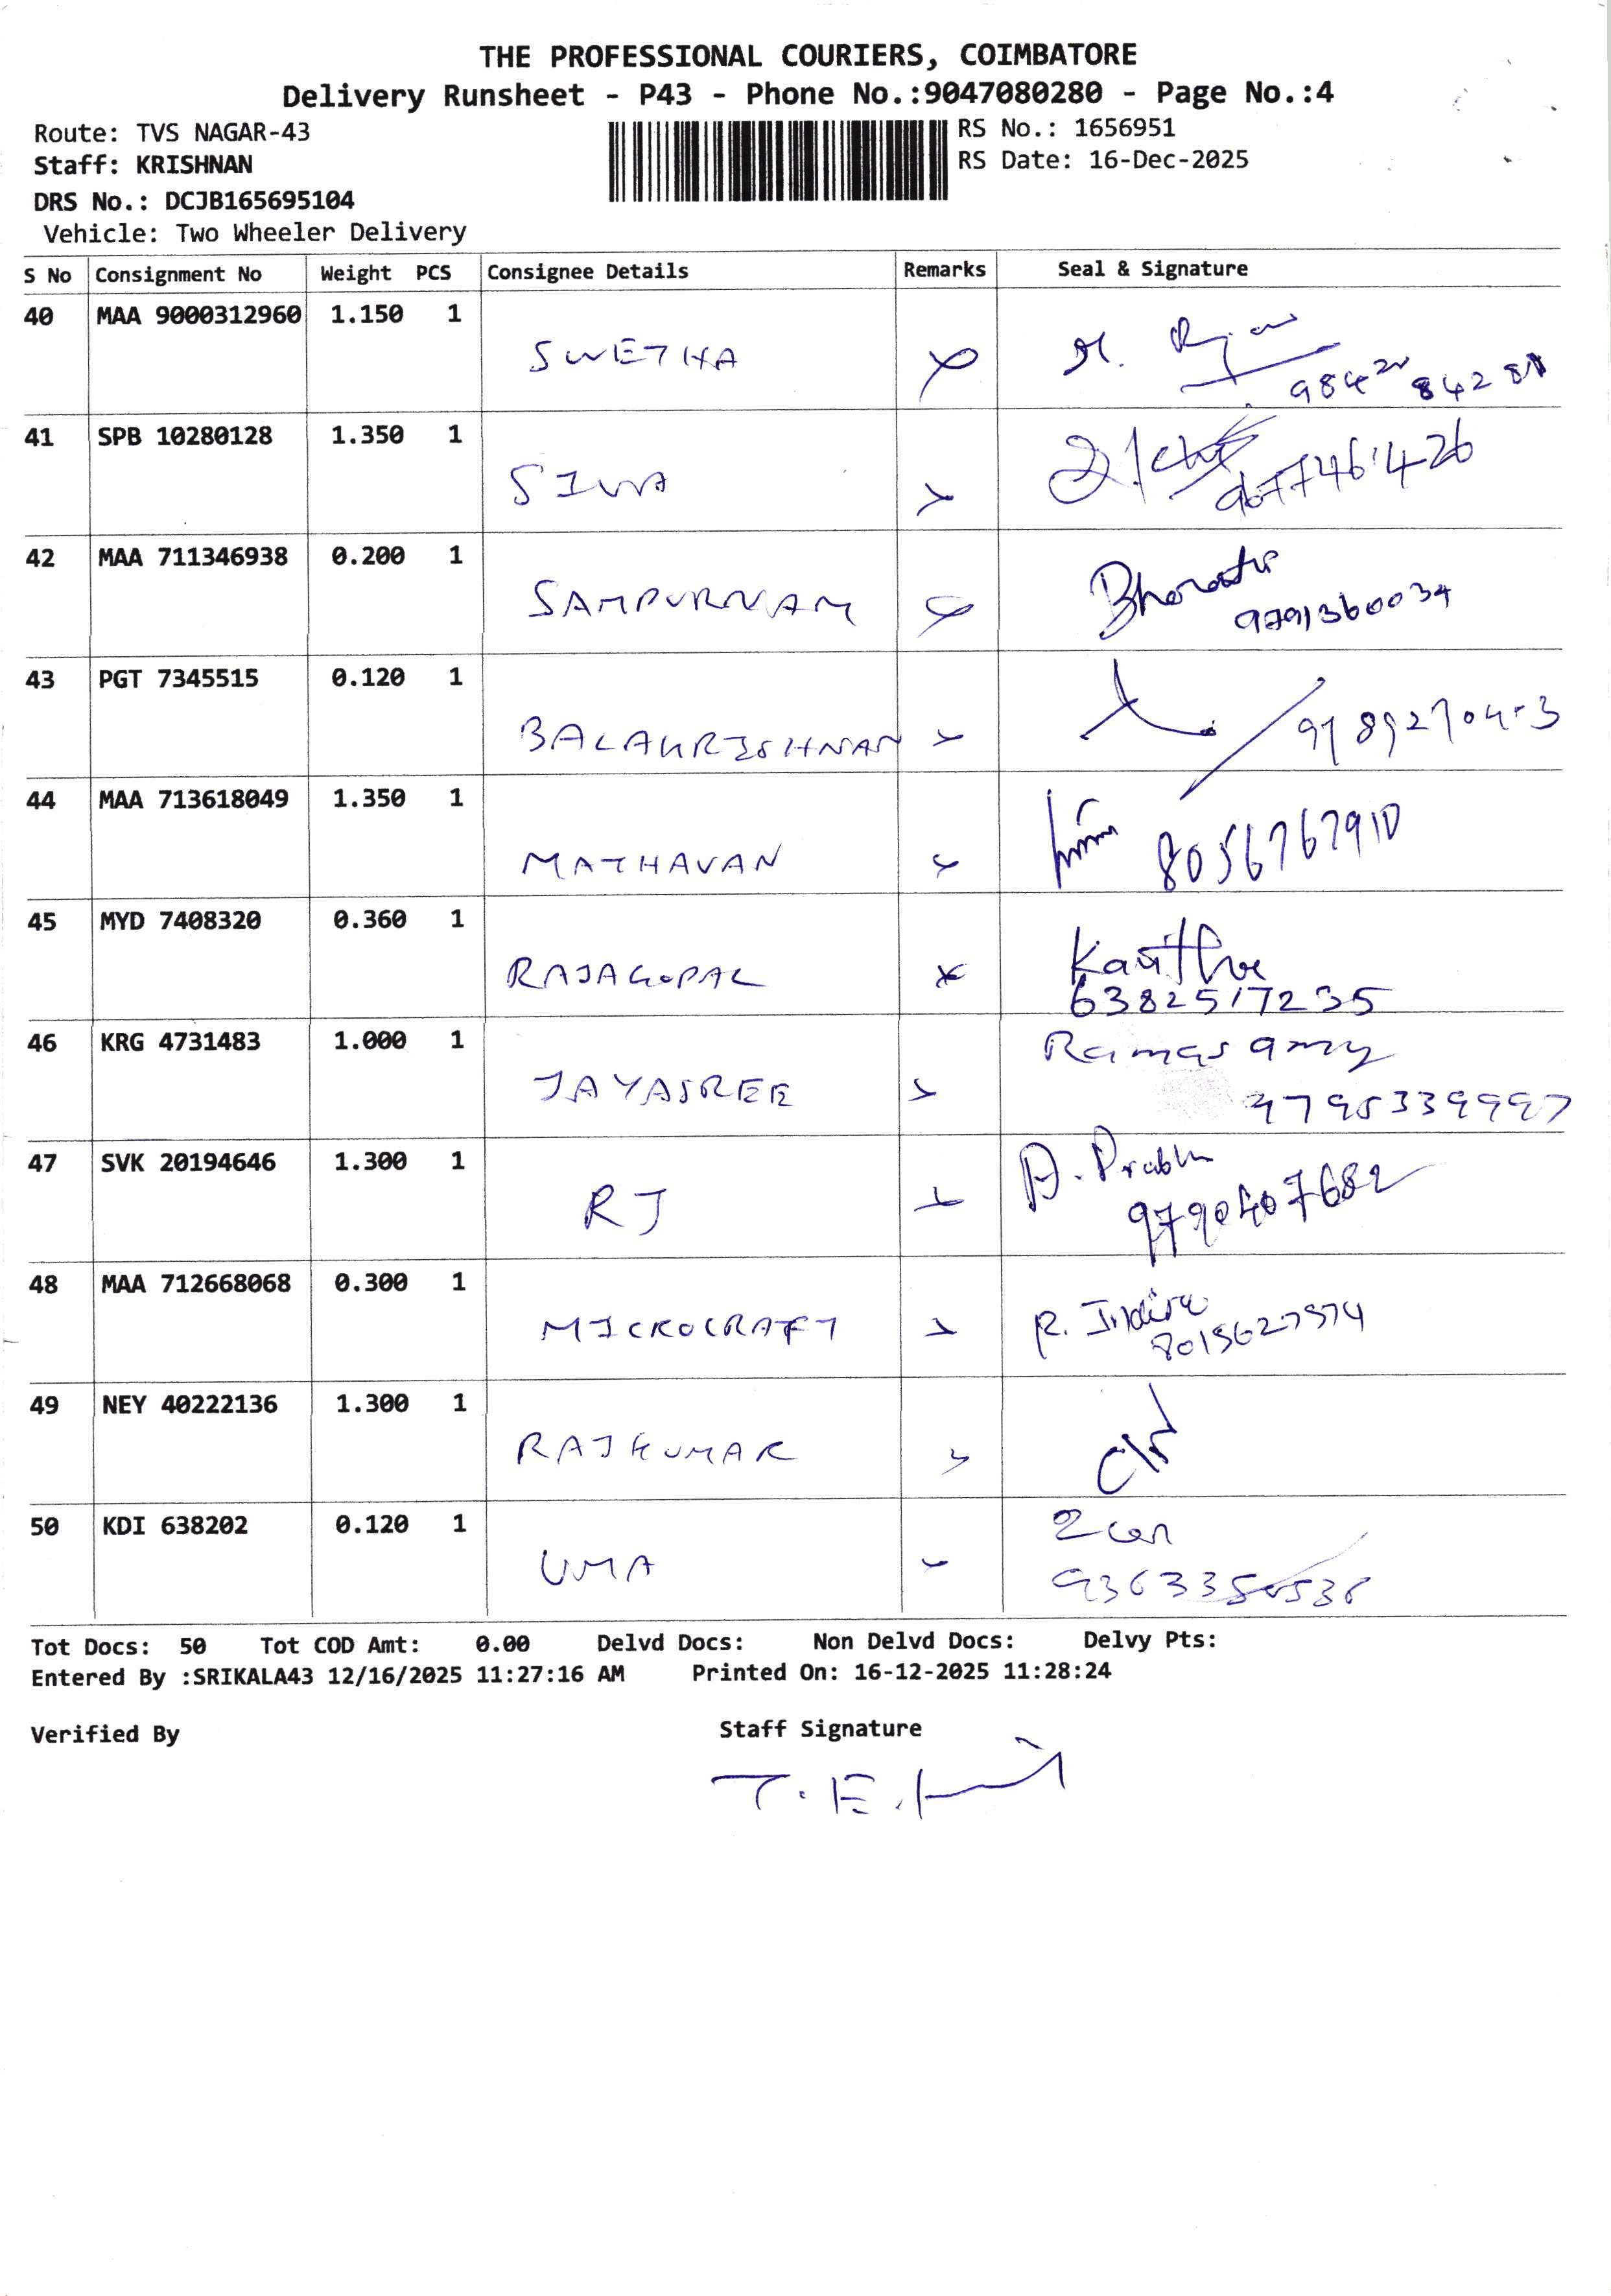 THE PROFESSIONAL COURIERS, COIMBATORE
Delivery Runsheet - P43 - Phone No.:9047080280 - Page No.:4
Route: TVS NAGAR-43
RS No.: 1656951
Staff: KRISHNAN
RS Date: 16-Dec-2025
DRS No.: DCJB165695104
Vehicle: Two Wheeler Delivery
S No Consignment No Weight PCS Consignee Details Remarks Seal & Signature
40 MAA 9000312960 1.150 1
SWETHA
41 SPB 10280128 1.350 1
SIVA
42 MAA 711346938 0.200 1
SAMPURNAM
9791360034
43 PGT 7345515 0.120 1
BALAKRISHNAN
44 MAA 713618049 1.350 1
MATHAVAN 8056767910
45 MYD 7408320 0.360 1
RAJAGOPAL
6382517235
46 KRG 4731483 1.000 1 Ramasamy
JAYASREE
47 SVK 20194646 1.300 1 A. Prabhu
RJ 9790407682
48 MAA 712668068 0.300 1 R. Indira
MICROCRAFT
49 NEY 40222136 1.300 1
RAJKUMAR
50 KDI 638202 0.120 1
UMA
Tot Docs: 50 Tot COD Amt: 0.00 Delvd Docs: Non Delvd Docs: Delvy Pts:
Entered By :SRIKALA43 12/16/2025 11:27:16 AM Printed On: 16-12-2025 11:28:24
Verified By Staff Signature